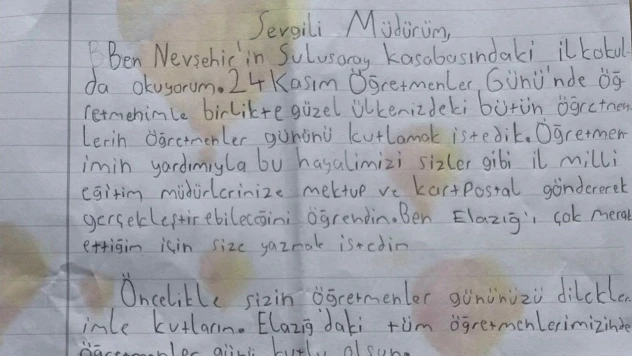 Sevgili Müdürüm,
Ben Nevşehir'in Sulusaray kasabasındaki ilkokul-
da okuyorum. 24 Kasım Öğretmenler Günü'nde öğ
retmenimle birlikte güzel ülkemizdeki bütün öğretmen
lerin öğretmenler gününü kutlamak istedik. Öğretmen
imin yardımıyla bu hayalimizi sizler gibi il milli
eğitim müdürlerimize mektup ve kartpostal göndererek
gerçekleştirebileceğimi öğrendim. Ben Elazığ'ı çok merak
ettiğim için size yazmak istedim
Öncelikle sizin öğretmenler gününüzü dilekler
imle kutlarım. Elazığ'daki tüm öğretmenlerimizinde
öğretmenler günü kutlu olsun.